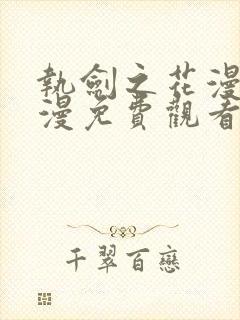 執劍之花漫
漫免費觀看
千翠百戀